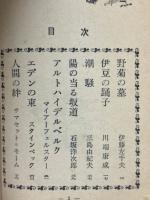 目次
野菊の墓 伊藤左千夫
伊豆の踊子 川端康成
潮騒 三島由紀夫
陽の当る坂道 石坂洋次郎
アルトハイデルベルク マイアーフェルスター
エデンの東 スタインベック
人間の絆 サマセット・モーム